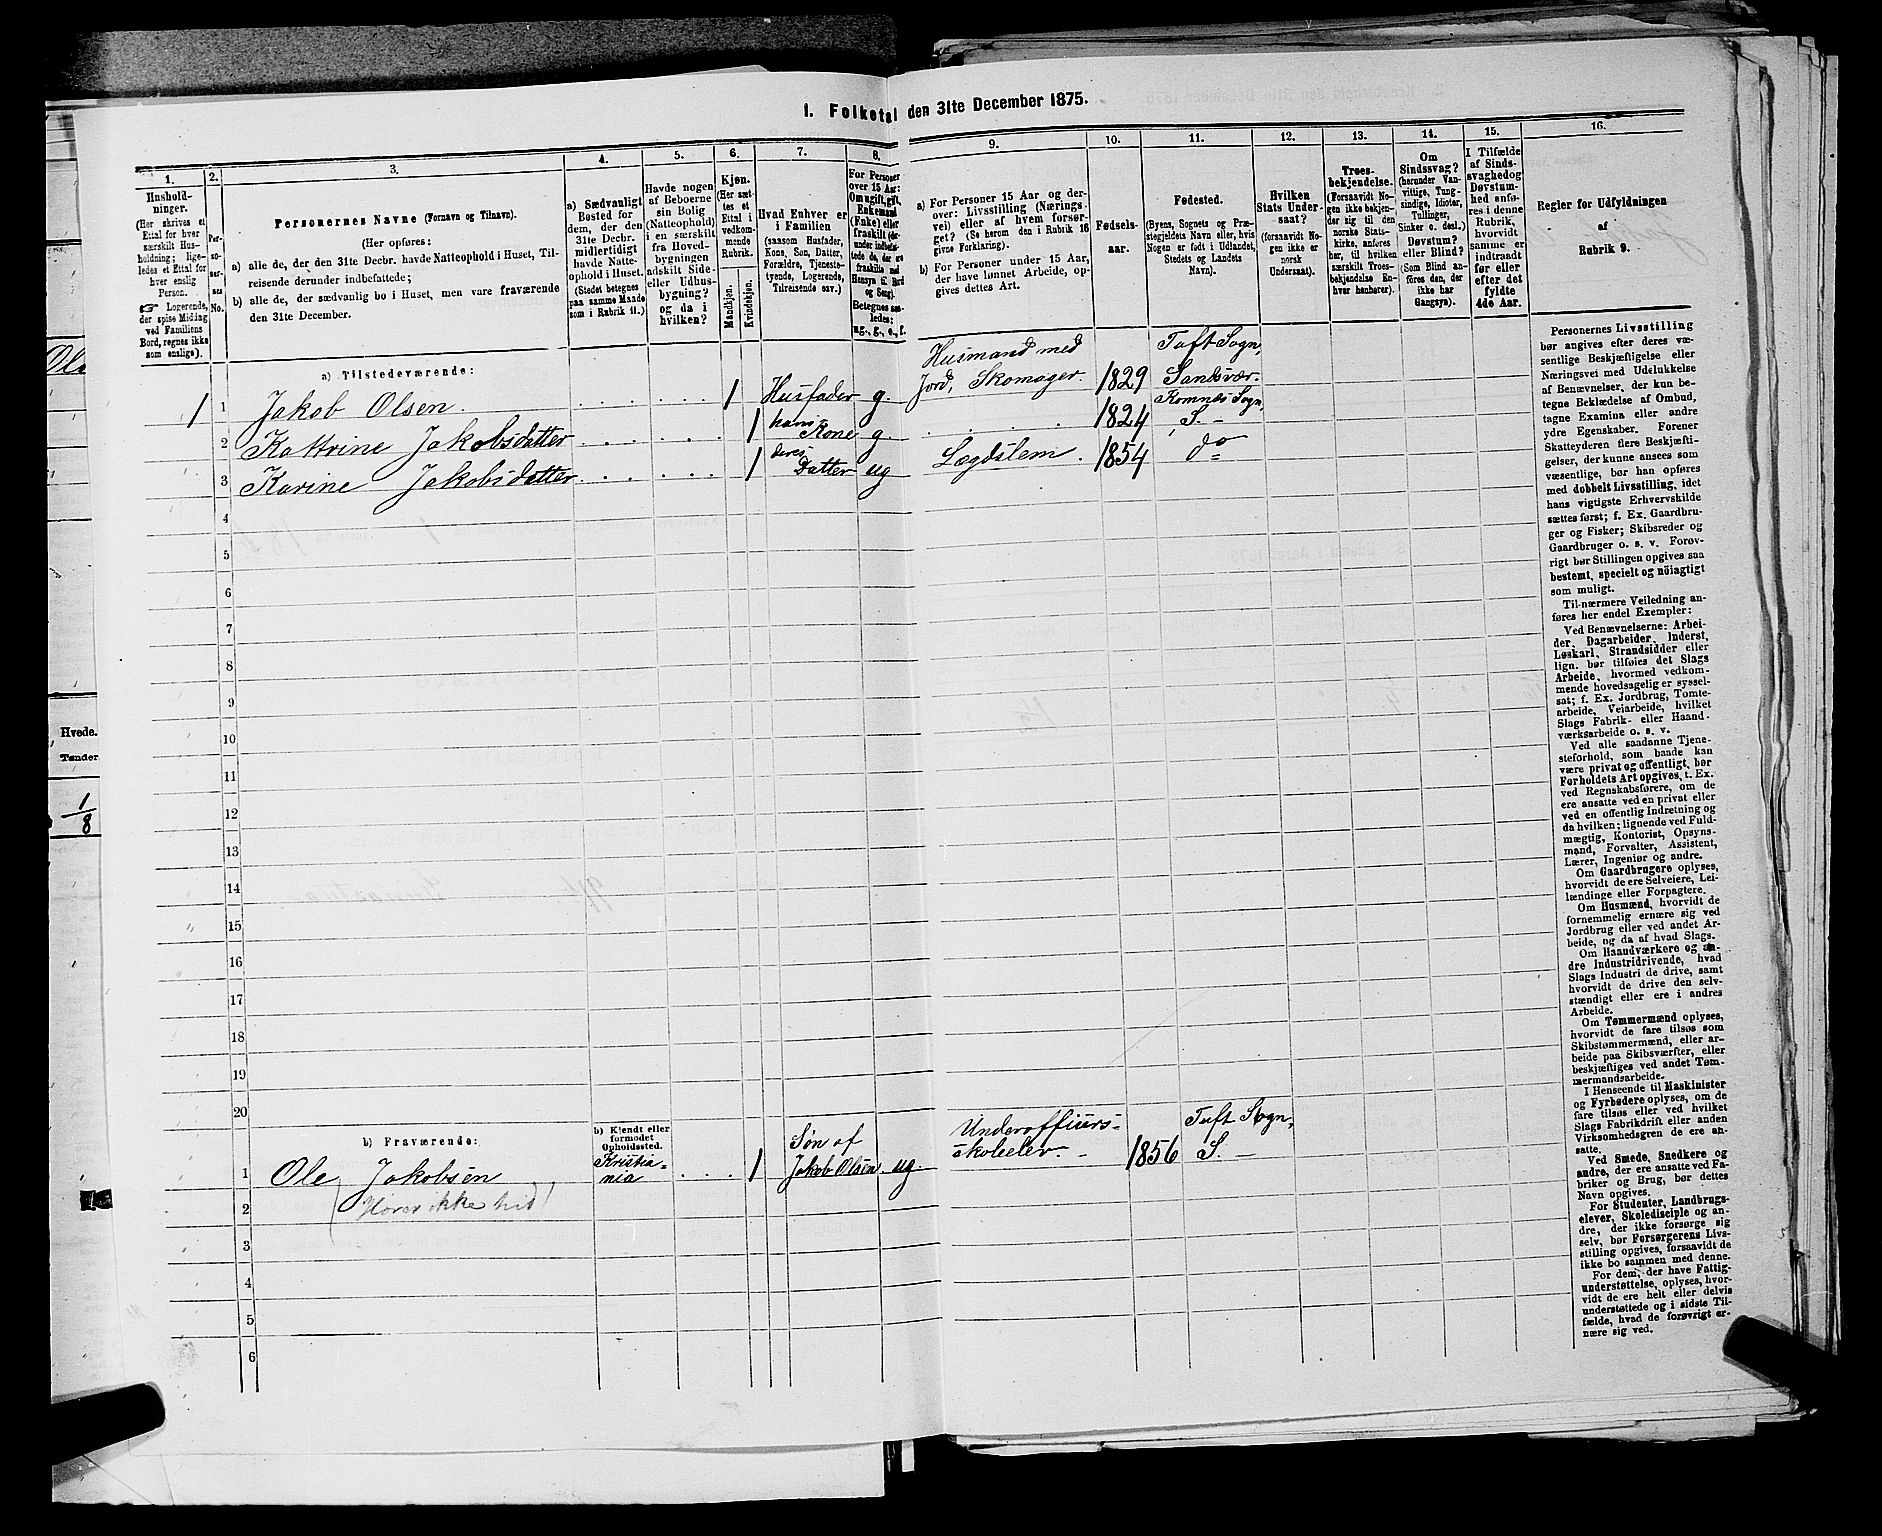 1. Folketal den 31te December 1875.
1.
Hushold-
ninger.
(Her skrives et
Ettal for hver
særskilt Hus-
holdning; lige-
ledes et Ettal for
hver enslig
Person.
Logerende,
der spise Middag
ved Familiens
Bord, regnes ikke
som enslige).
2.
Per-
so-
ner-
nes
No.
3.
Personernes Navne (Fornavn og Tilnavn).
(Her opføres:
a) alle de, der den 31te Decbr. havde Natteophold i Huset, Til-
reisende derunder indbefattede;
b) alle de, der sædvanlig bo i Huset, men vare fraværende
den 31te December.
4.
a) Sædvanligt
Bosted for
dem, der den
31te Decbr.
midlertidigt
havde Natte-
ophold i Huset.
(Stedet betegnes
paa samme Maade
som i Rubrik 11.)
5.
Havde nogen
af Beboerne
sin Bolig
(Natteophold)
i en særskilt
fra Hoved-
bygningen
adskilt Side-
eller Udhus-
bygning?
og da i
hvilken?
6.
Kjøn.
(Her sæt-
tes et
Ettal i
vedkom-
mende
Rubrik.
Mandkjøn.
Kvindekjøn.
7.
Hvad Enhver er
i Familien
(saasom Husfader,
Kone, Søn, Datter,
Forældre, Tjeneste-
tyende, Logerende,
Tilreisende osv.)
8.
For Personer
over 15 Aar:
Om ugift, gift,
Enkemand
(Enke) eller
fraskilt
Betegnes saa-
ledes:
ug., g., e., f.
9.
a) For Personer 15 Aar og der-
over: Livsstilling (Nærings-
vei) eller af hvem forsør-
get? (Se herom den i Rubrik 16
givne Forklaring).
b) For Personer under 15 Aar,
der have lønnet Arbeide, op-
gives dettes Art.
10.
Fødsels-
aar.
11.
Fødested.
(Byens, Sognets og Præ-
stegjeldets Navn eller, hvis
Nogen er født i Udlandet,
Stedets og Landets
Navn).
12.
Hvilken
Stats Under-
saat?
(forsaavidt No-
gen ikke er
norsk
Undersaat).
13.
Troes-
bekjendelse.
(Forsaavidt No-
gen ikke bekjen-
der sig til den
norske Stats-
kirke, anføres
her, til hvilken
særskilt Troes-
bekjendelse En-
hver henhører).
14.
Om
Sindssvag?
(herunder Van-
vittige, Tung-
sindige, Idioter,
Tullinger,
Sinker o. desl.)
Døvstum?
eller Blind?
(Som Blind an-
føres den, der
ikke har
Gangsyn).
15.
I Tilfælde
af Sinds-
svaghed og
Døvstum-
hed anfø-
res i denne
Rubrik,
hvorvidt
samme er
indtraadt
før eller
efter det
fyldte
4de Aar.
16.
Regler for Udfyldningen
af
Rubrik 9.
a) Tilstedeværende:
1 1 Jakob Olsen. 1 Husfader g. Husmand med Jord, Skomager. 1829 Tuft Sogn, Sandsvær.
2 Kattrine Jakobsdatter 1 hans Kone g. 1824 Komnes Sogn, S. -
3 Karine Jakobsdatter 1 deres Datter ug Lægdslem. 1854 do
4
5
6
7
8
9
10
11
12
13
14
15
16
17
18
19
20
b) Fraværende:
b) Kjendt eller
formodet
Opholdssted.
1 Ole Jakobsen Kristia-nia 1 Søn af Jakob Olsen ug. Underofficiers-skoleelev. 1856 Tuft Sogn, S. -
2 (Hører ikke hid)
3
4
5
6
Personernes Livsstilling
bør angives efter deres væ-
sentlige Beskjæftigelse eller
Næringsvei med Udelukkelse
af Benævnelser, der kun be-
tegne Beklædelse af Ombud,
tagne Examina eller andre
ydre Egenskaber. Forener
Skatteyderen flere Beskjæfti-
gelser, der kunne ansees som
væsentlige, bør han opføres
med dobbelt Livsstilling, idet
hans vigtigste Erhvervskilde
sættes først; f. Ex. Gaardbru-
ger og Fisker; Skibsreder og
Gaardbruger o. s. v. Forøv-
rigt bør Stillingen opgives saa
bestemt, specielt og nöiagtigt
som muligt.
Til nærmere Veiledning an-
føres her endel Exempler:
Ved Benævnelserne: Arbei-
der, Dagarbeider, Inderst,
Løskarl, Strandsidder eller
lign. bør tilføies det Slags
Arbeide, hvormed vedkom-
mende hovedsagelig er syssel-
sat; f. Ex. Jordbrug, Tomte-
arbeide, Veiarbeide, hvilket
Slags Fabrik- eller Haand-
værksarbeide o. s. v.
Ved alle saadanne Tjene-
steforhold, som baade kan
være privat og offentligt, bør
Forholdets Art opgives, t. Ex.
ved Regnskabsførere, om de
ere ansatte ved en privat eller
ved en offentlig Indretning og
da hvilken; lignende ved Fuld-
mægtig, Kontorist, Opsyns-
mand, Forvalter, Assistent,
Lærer, Ingeniør og andre.
Om Gaardbrugere oplyses,
hvorvidt de ere Selveiere, Lei-
lændinge eller Forpagtere.
Om Husmænd, hvorvidt de
fornemmelig ernære sig ved
Jordbrug eller ved andet Ar-
beide, og da af hvad Slags.
Om Haandværkere og an-
dre Industridrivende, hvad
Slags Industri de drive, samt
hvorvidt de drive den selv-
stændigt eller ere i andres
Arbeide.
Om Tømmermænd oplyses,
hvorvidt de fare tilsøs som
Skibstømmermænd, eller ar-
beide paa Skibsværfter, eller
beskjæftiges ved andet Tøm-
mermandsarbeide.
I Henseende til Maskinister
og Fyrbødere oplyses, om de
fare tilsøs eller ved hvilket
Slags Fabrikdrift eller anden
Virksomhedsgren de ere an-
satte.
Ved Smede, Snedkere og
andre, der ere ansatte ved Fa-
briker og Brug, bør dettes
Navn opgives.
For Studenter, Landbrugs-
elever, Skoledisciple og an-
dre, der ikke forsørge sig
selv, bør Forsørgerens Livs-
stilling opgives, forsaavidt de
ikke bo sammen med denne.
For dem, der have Fattig-
understøttelse, oplyses, hvor-
vidt de ere helt eller delvis
understøttede og i sidste Til-
fælde, hvad de forøvrigt er-
nære sig ved.
Hvede.
Tønder
1/8